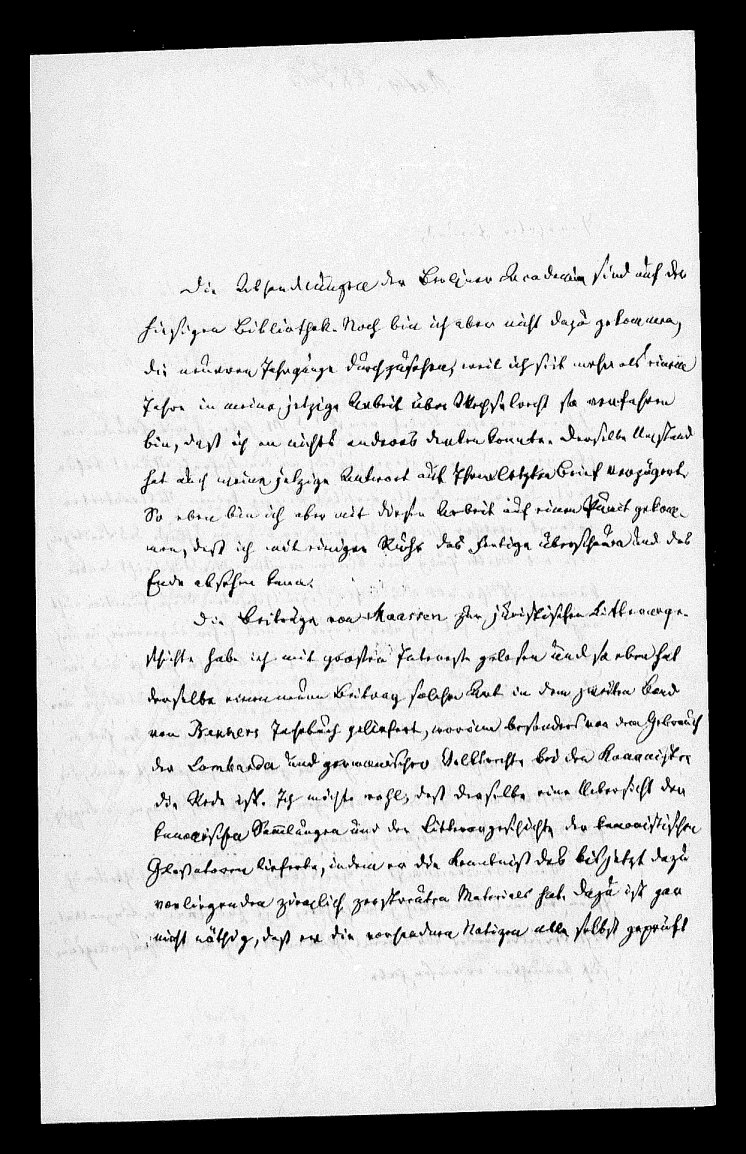 Die Absendungen der Berliner Academie sind auf der
hiesigen Bibliothek. Noch bin ich aber nicht dazu gekommen,
die neueren Jahrgänge durchzusehen, weil ich seit mehr als einem
Jahre in meine jetzige Arbeit über Wechselrecht so verfahren
bin, daß ich an nichts anderes denken konnte. Derselbe Umstand
hat auch meine jetzige Antwort auf Ihren letzten Brief verzögert.
So eben bin ich aber mit dieser Arbeit auf einen Punct gekom-
men, daß ich mit einiger Ruhe das Fertige überschauen und das
Ende absehen kann.
Die Beiträge von Maassen zur juristischen Litterarge-
schichte habe ich mit großem Interesse gelesen und so eben hat
derselbe einen neuen Beitrag solcher Art in dem zweiten Band
von Bekkers Jahrbuch geliefert, worin besonders von dem Gebrauch
der Lombarda und germanischer Volksrechte bei den Kanonisten
die Rede ist. Ich möchte wohl, daß derselbe eine Uebersicht der
kanonischen Sammlungen und der Litterargeschichte der kanonistischen
Glossatoren lieferte, indem er die Kenntniß des bis jetzt dazu
vorliegenden ziemlich zerstreuten Materials hat. Dazu ist gar
nicht nöthig, daß er die vorhandenen Notizen alle selbst geprüft